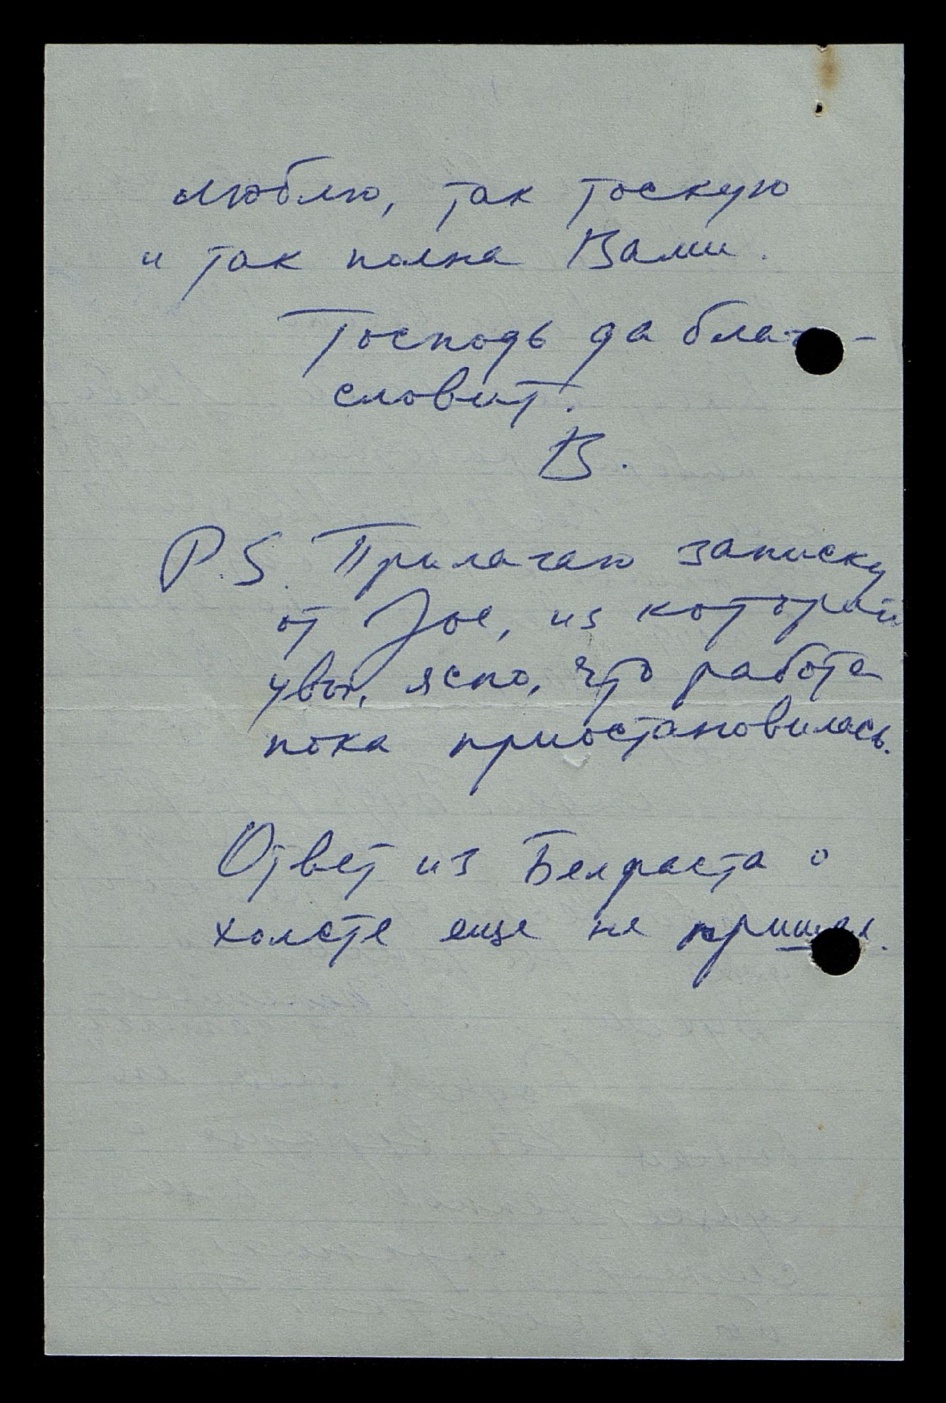 люблю, так тоскую
и так полна Вами.
Господь да благо-
словит.
В.
P.S. Прилагаю записку
от Joe, из которой
увы, ясно, что работа
пока приостановилась.
Ответ из Белфаста о
холсте еще не пришел.